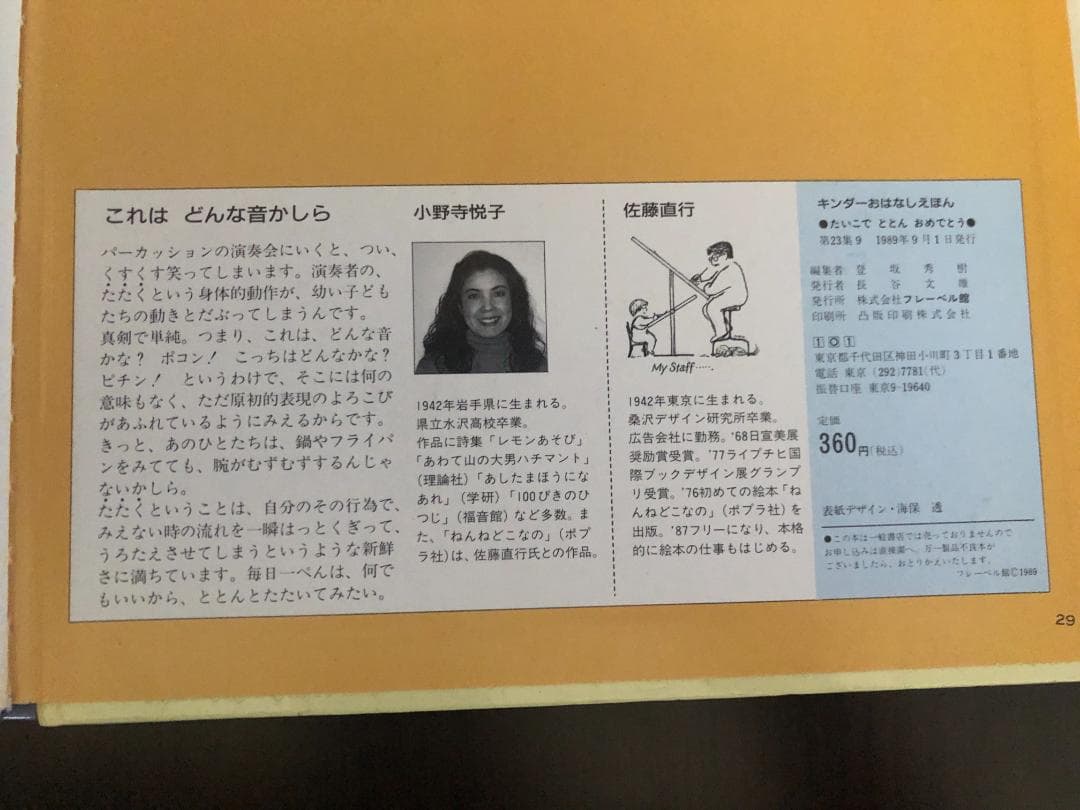 これは どんな音かしら
パーカッションの演奏会にいくと、つい、
くすくす笑ってしまいます。演奏者の、
たたくという身体的動作が、幼い子ども
たちの動きとだぶってしまうんです。
真剣で単純。つまり、これは、どんな音
かな? ポコン! こっちはどんなかな?
ピチン! というわけで、そこには何の
意味もなく、ただ原初的表現のよろこび
があふれているようにみえるからです。
きっと、あのひとたちは、鍋やフライパ
ンをみてても、腕がむずむずするんじゃ
ないかしら。
たたくということは、自分のその行為で、
みえない時の流れを一瞬はっとくぎって、
うろたえさせてしまうというような新鮮
さに満ちています。毎日一ぺんは、何で
もいいから、ととんとたたいてみたい。
小野寺悦子
1942年岩手県に生まれる。
県立水沢高校卒業。
作品に詩集「レモンあそび」
「あわて山の大男ハチマント」
(理論社)「あしたまほうに
あれ」(学研)「100ぴきのひ
つじ」(福音館)など多数。ま
た、「ねんねどこなの」(ポプ
ラ社)は、佐藤直行氏との作品。
佐藤直行
My Staff·····.
1942年東京に生まれる。
桑沢デザイン研究所卒業。
広告会社に勤務。'68日宣美展
奨励賞受賞。'77ライプチヒ国
際ブックデザイン展グランプ
リ受賞。'76初めての絵本「ね
んねどこなの」(ポプラ社)を
出版。'87フリーになり、本格
的に絵本の仕事もはじめる。
キンダーおはなしえほん
●だいこで ととん おめでとう●
第23集9 1989年9月1日発行
編集者 登坂秀樹
発行者 長谷文雄
発行所 株式会社フレーベル館
印刷所 凸版印刷株式会社
101
東京都千代田区神田小川町3丁目1番地
電話 東京 (292)7781(代)
振替口座 東京9-19640
定価
360円(税込)
表紙デザイン・海保 透
●この本は一般書店では売っておりませんので
お申し込みは直接園へ。万一製品不良本が
ございましたら、おとりかえいたします。
フレーベル館©1989
29